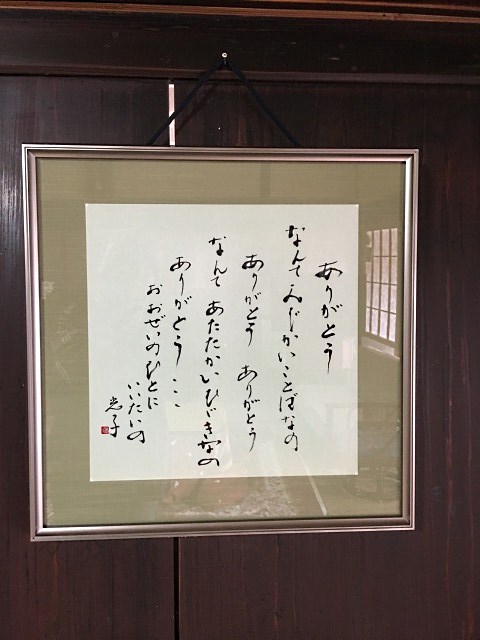 ありがとう
なんて みじかいことばなの
ありがとう ありがとう
なんて あたたかいひびきなの
ありがとう
おおぜいのひとに
いいたいの
光子